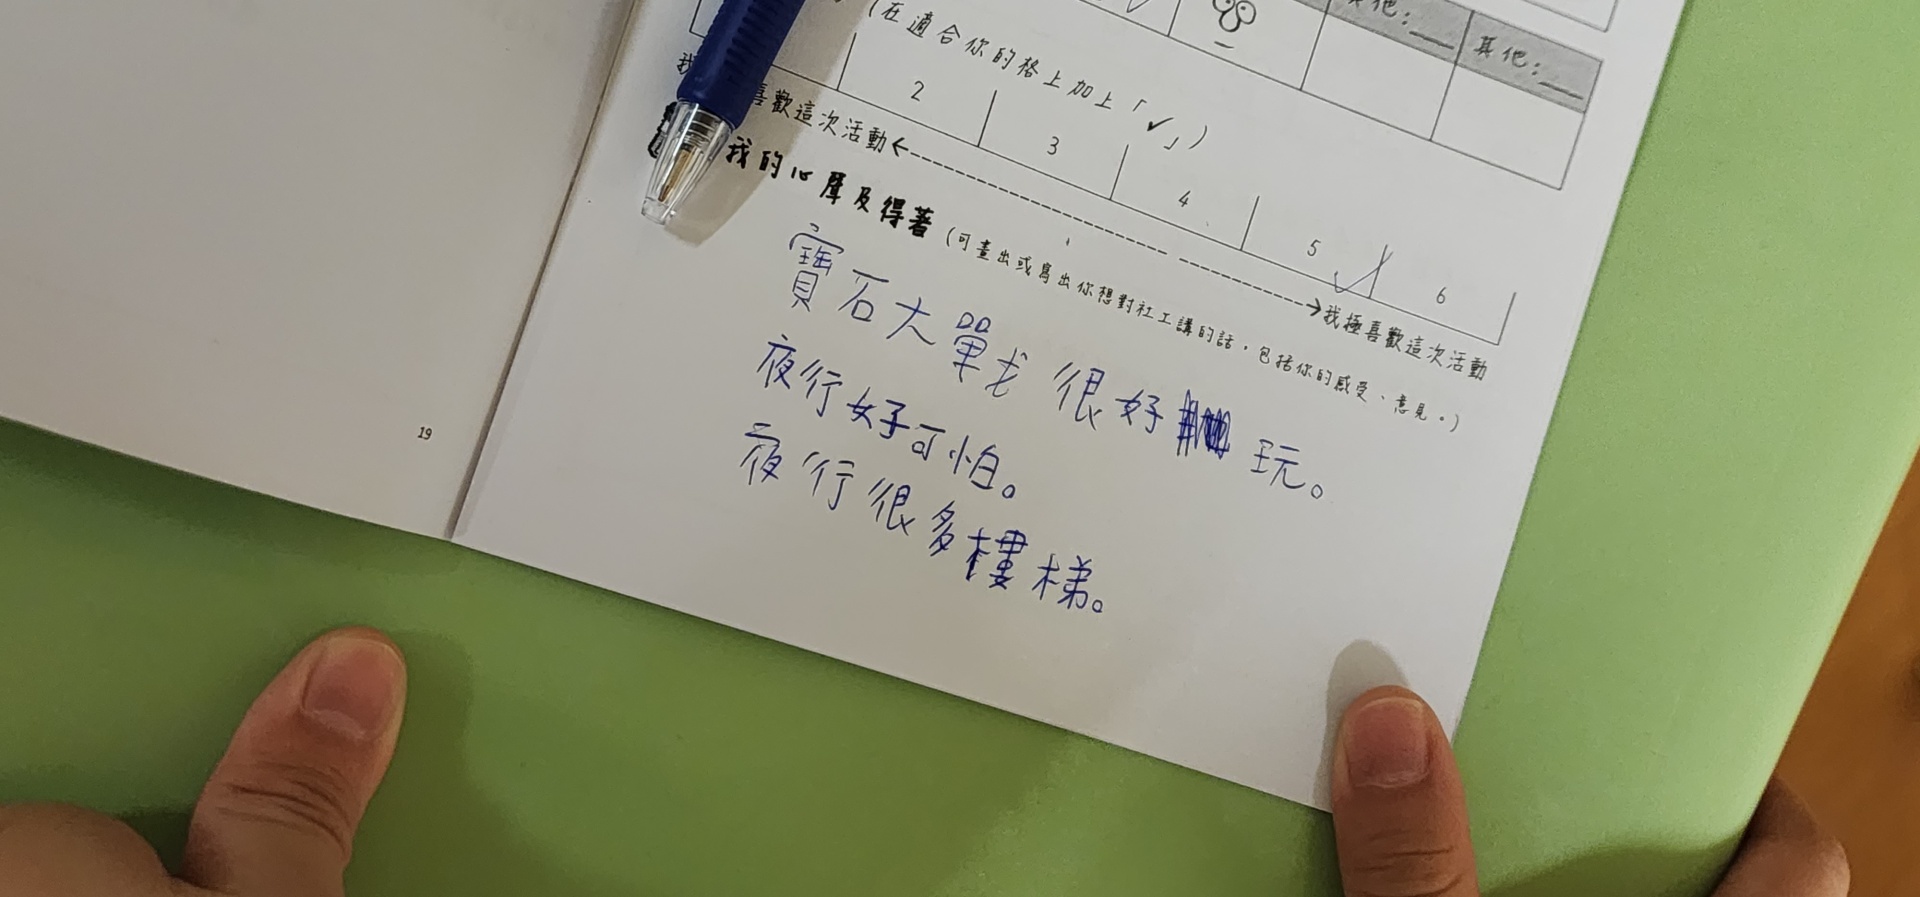 其他：__
其他：__
（在適合你的格上加上「✓」）
2
3
4
5
6
喜歡這次活動
我極喜歡這次活動
我的心聲及得著（可畫出或寫出你想對社工講的話，包括你的感受、意見。）
寶石大單戈很好玩。
夜行好可怕。
夜行很多樓梯。
19